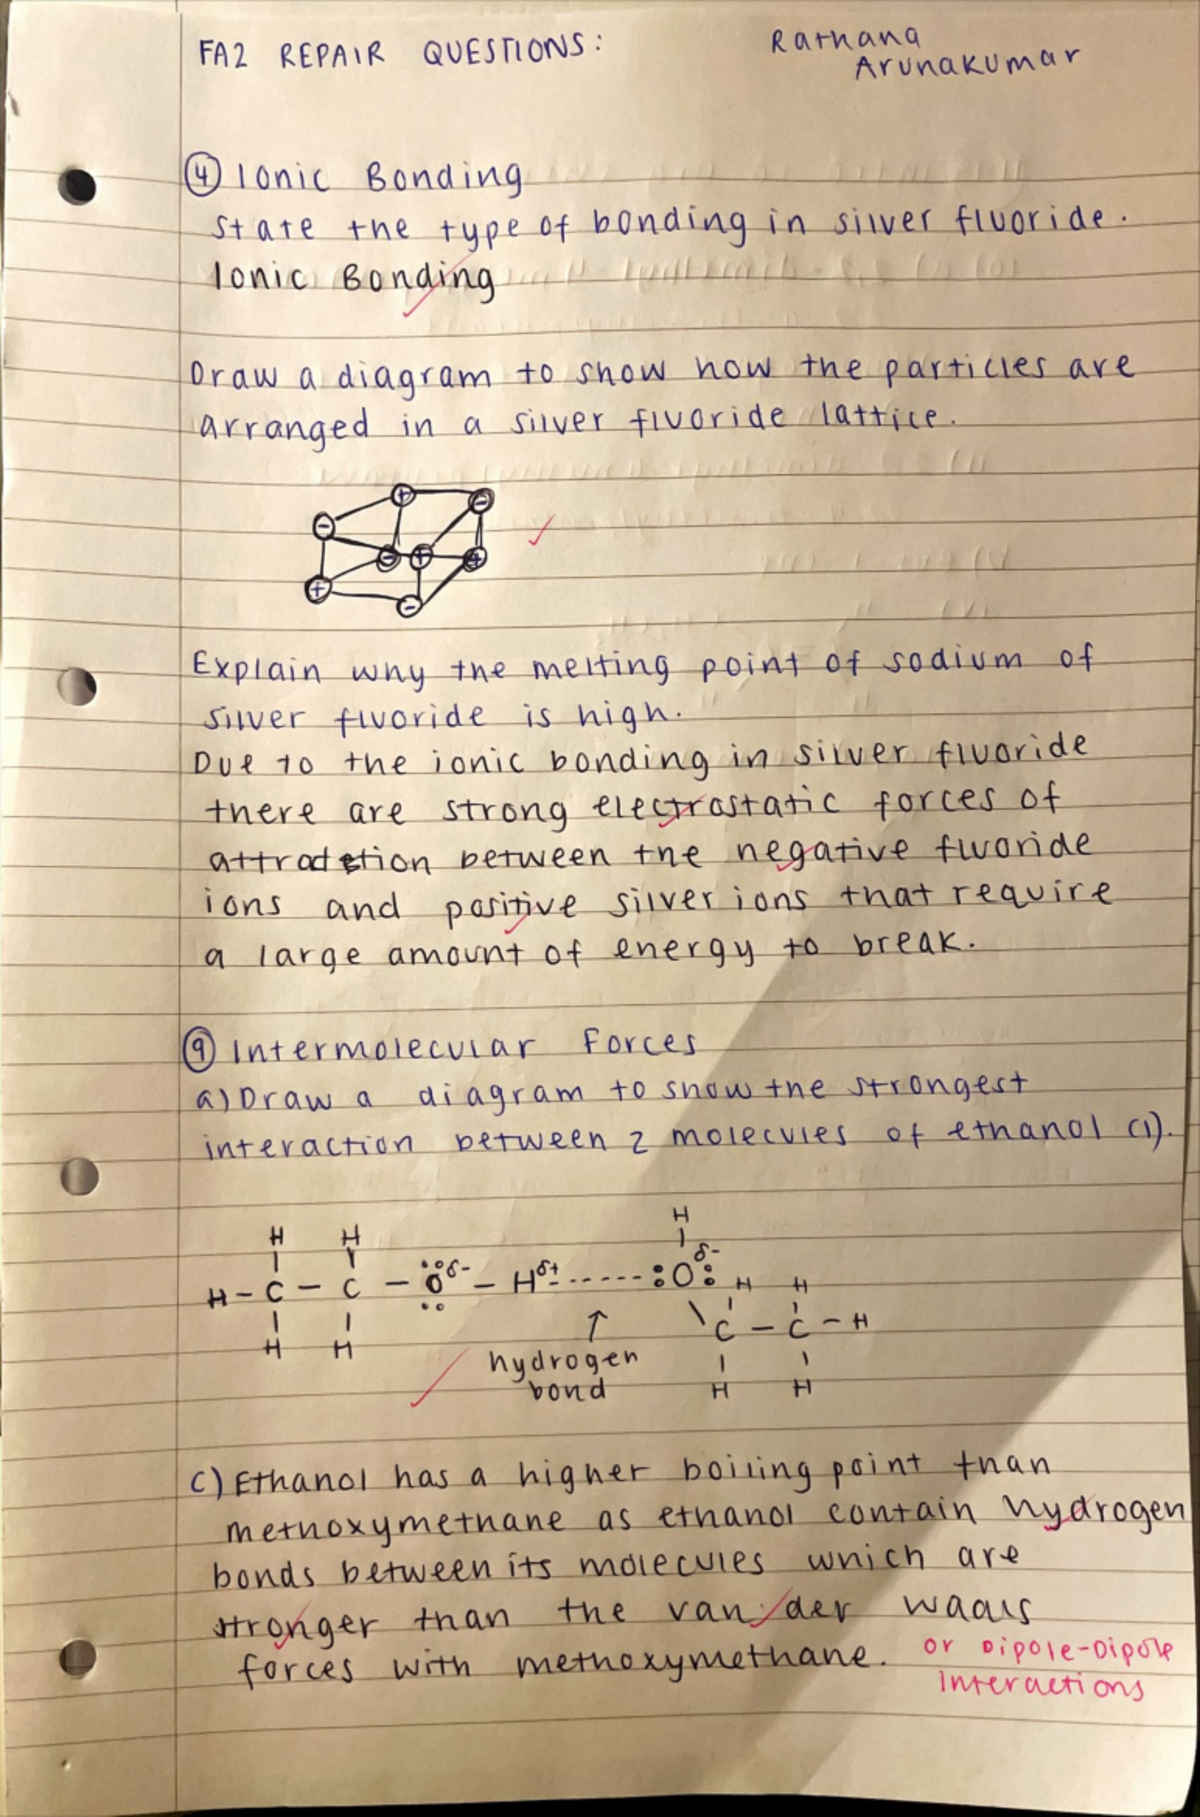 FA2 REPAIR QUESTIONS:
Rathana
Arunakumar
④ Ionic Bonding
State the type of bonding in silver fluoride.
Ionic Bonding
Draw a diagram to show how the particles are
arranged in a silver fluoride lattice.
+ -
- - + +
+ -
Explain why the melting point of sodium of
silver fluoride is high.
Due to the ionic bonding in silver fluoride
there are strong electrostatic forces of
attraction between the negative fluoride
ions and positive silver ions that require
a large amount of energy to break.
⑨ Intermolecular Forces
a) Draw a diagram to show the strongest
interaction between 2 molecules of ethanol (1).
H
H H δ-
H - C - C - O δ- - H δ+ ------ :O: H H
H H C - C - H
hydrogen
bond
H H
c) Ethanol has a higher boiling point than
methoxymethane as ethanol contain hydrogen
bonds between its molecules which are
stronger than the van der waals
forces with methoxymethane.
or Dipole-Dipole
Interactions